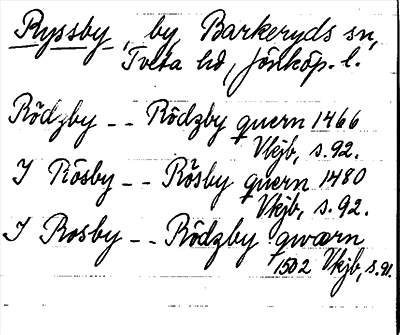 Ryssby, by Barkeryds sn,
Tveta hd, Jönköp. l.
Rödzby -- Rödzby quern 1466
Vkjb, s. 92.
I Rösby -- Rösby quern 1480
Vkjb, s. 92.
I Rosby -- Rödzby qwærn
1502 Vkjb, s. 91.